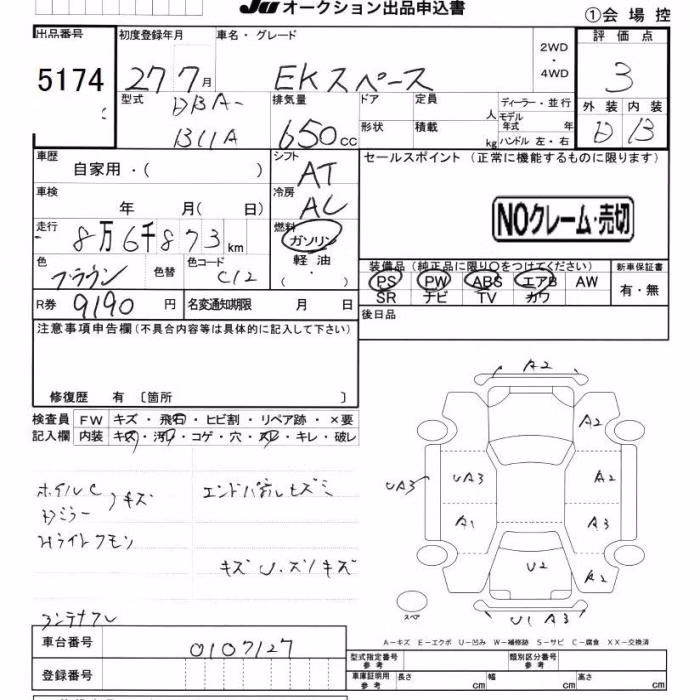 JU オークション出品申込書
①会場控
出品番号 初度登録年月 車名・グレード 2WD ・ 4WD 評価点
5174 27 7月 EKスペース 3
型式 DBA- B11A 排気量 650cc ドア 定員 人 ディーラー・並行
形状 積載 kg モデル年式 年 ハンドル 左・右
外装 内装
D B
車歴 自家用・( ) シフト AT
セールスポイント (正常に機能するものに限ります)
車検 年 月( 日) 冷房 AC
NOクレーム・売切
走行 8万6千873km 燃料 ガソリン 軽油 ( ・ )
色 ブラウン 色替 色コード C12
装備品 (純正品に限り○をつけてください) 新車保証書
PS PW ABS エアB AW 有・無
SR ナビ TV カワ
R券 9190円 名変通知期限 月 日
後日品
注意事項申告欄(不具合内容等は具体的に記入して下さい)
修復歴 有 〔箇所 〕
検査員 FW キズ・飛石・ヒビ割・リペア跡・×要
記入欄 内装 キズ・汚レ・コゲ・穴・スレ・キレ・破レ
A2
A2
UA3 UA3 A2
A1 A3
U2
A2
U1 A3
スペア
ホイルC
キズ
Dミラー
Hライトクモリ
キズU・ズノキズ
A－キズ E－エクボ U－凹み W－補修跡 S－サビ C－腐食 XX－交換済
車台番号 0107127
型式指定番号 参考 類別区分番号 参考
登録番号
車庫証明用 参考 長さ cm 幅 cm 高さ cm